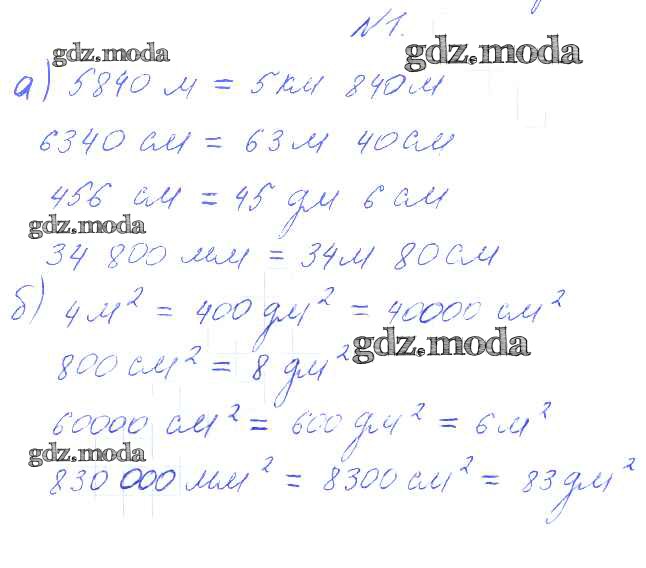 №1.
gdz.moda
gdz.moda
а) 5840 м = 5 км 840 м
6340 см = 63 м 40 см
456 см = 45 дм 6 см
gdz.moda
34 800 мм = 34 м 80 см
б) 4 м² = 400 дм² = 40000 см²
gdz.moda
800 см² = 8 дм²
60000 см² = 600 дм² = 6 м²
gdz.moda
830 000 мм² = 8300 см² = 83 дм²